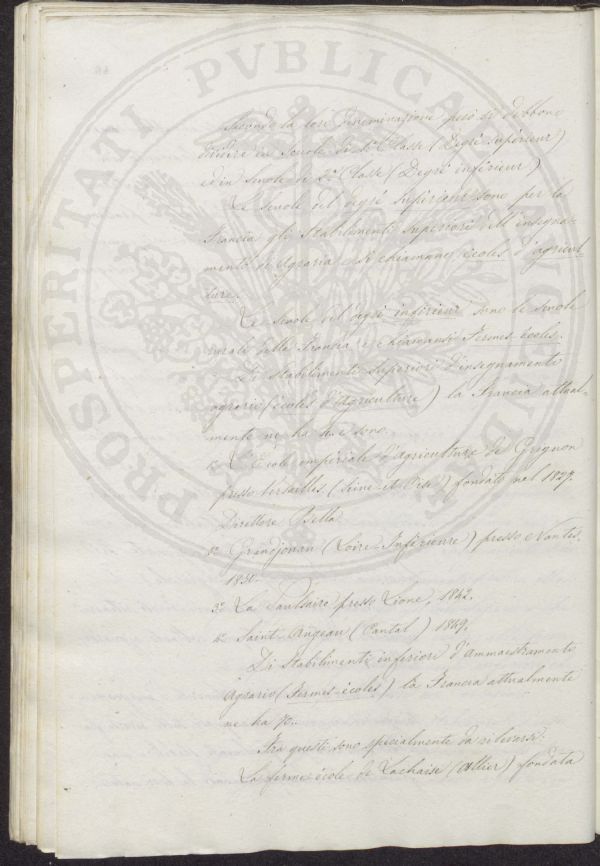 Secondo la loro denominazione però si debbono
dividere in Scuole di 1a Classe (Degré supérieur)
ed in Scuole di 2a Classe (Degré inférieur)
Le Scuole del degré supérieur sono per la
Francia gli Stabilimenti Superiori dell'insegna-
mento di Agraria e si chiamano écoles d'agricul-
ture.
Le Scuole del degré inférieur sono le Scuole
rurali della Francia e chiamansi Fermes-écoles.
Di Stabilimenti Superiori d'insegnamento
agrario (écoles d'Agriculture) la Francia attual-
mente ne ha 4. e sono.
1o L'Ecole impériale d'agriculture de Grignon
presso Versailles. (Seine-et-Oise) fondata nel 1827.
Direttore Bella
2o Grandjouan (Loire-Inférieure) presso Nantes.
1830.
3o La Saulsaie presso Lione, 1842.
4o Saint-Angeau (Cantal) 1849.
Di Stabilimenti inferiori d'Ammaestramento
Agrario (Fermes-écoles) la Francia attualmente
ne ha
Tra questi sono specialmente da rilevarsi.
La ferme école de Lachaise (Allier) fondata
PROSPERITATI PVBLICAE